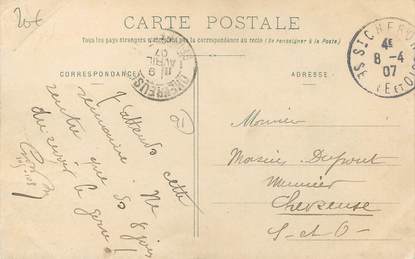 20€
CARTE POSTALE
Tous les pays étrangers n'acceptent pas la correspondance au recto (Se renseigner à la Poste).
CORRESPONDANCE
ADRESSE
CHEVREUSE
9
AVRIL
07
ST CHERON
4E
8-4
07
SE ET OISE
J'attends cette
semaine. Ne
rentre que 8 jours
Monsieur
Maurice Dupont
Meunier
Chevreuse
S-et-O-